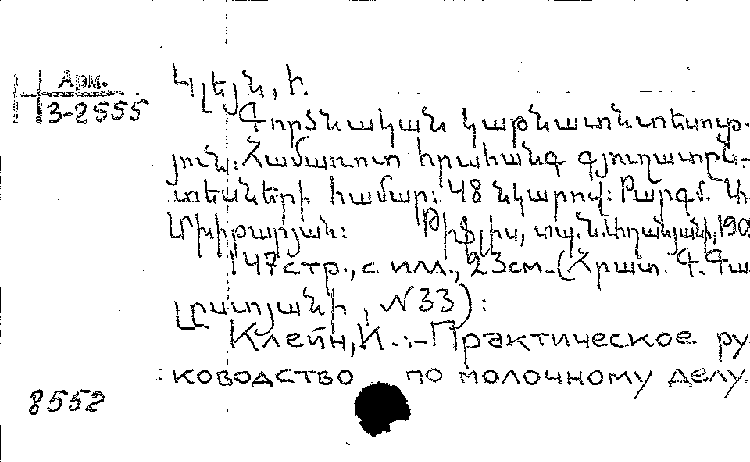 Арм.
3-2555
Կլեյն, Ի.
Գործնական կաթնատնտեսութ-
յուն: Համառոտ հրահանգ գյուղատըն-
տեսների համար: 48 նկարով: Բարգմ. Ի
Մխիթարյան: Թիֆլիս, տպ. 190
47 стр., с илл., 23см.-(Հրատ. Գ. Գա
լըստյանի, №33):
Клейн, И.:-Практическое ру
ководство по молочному делу.
8552